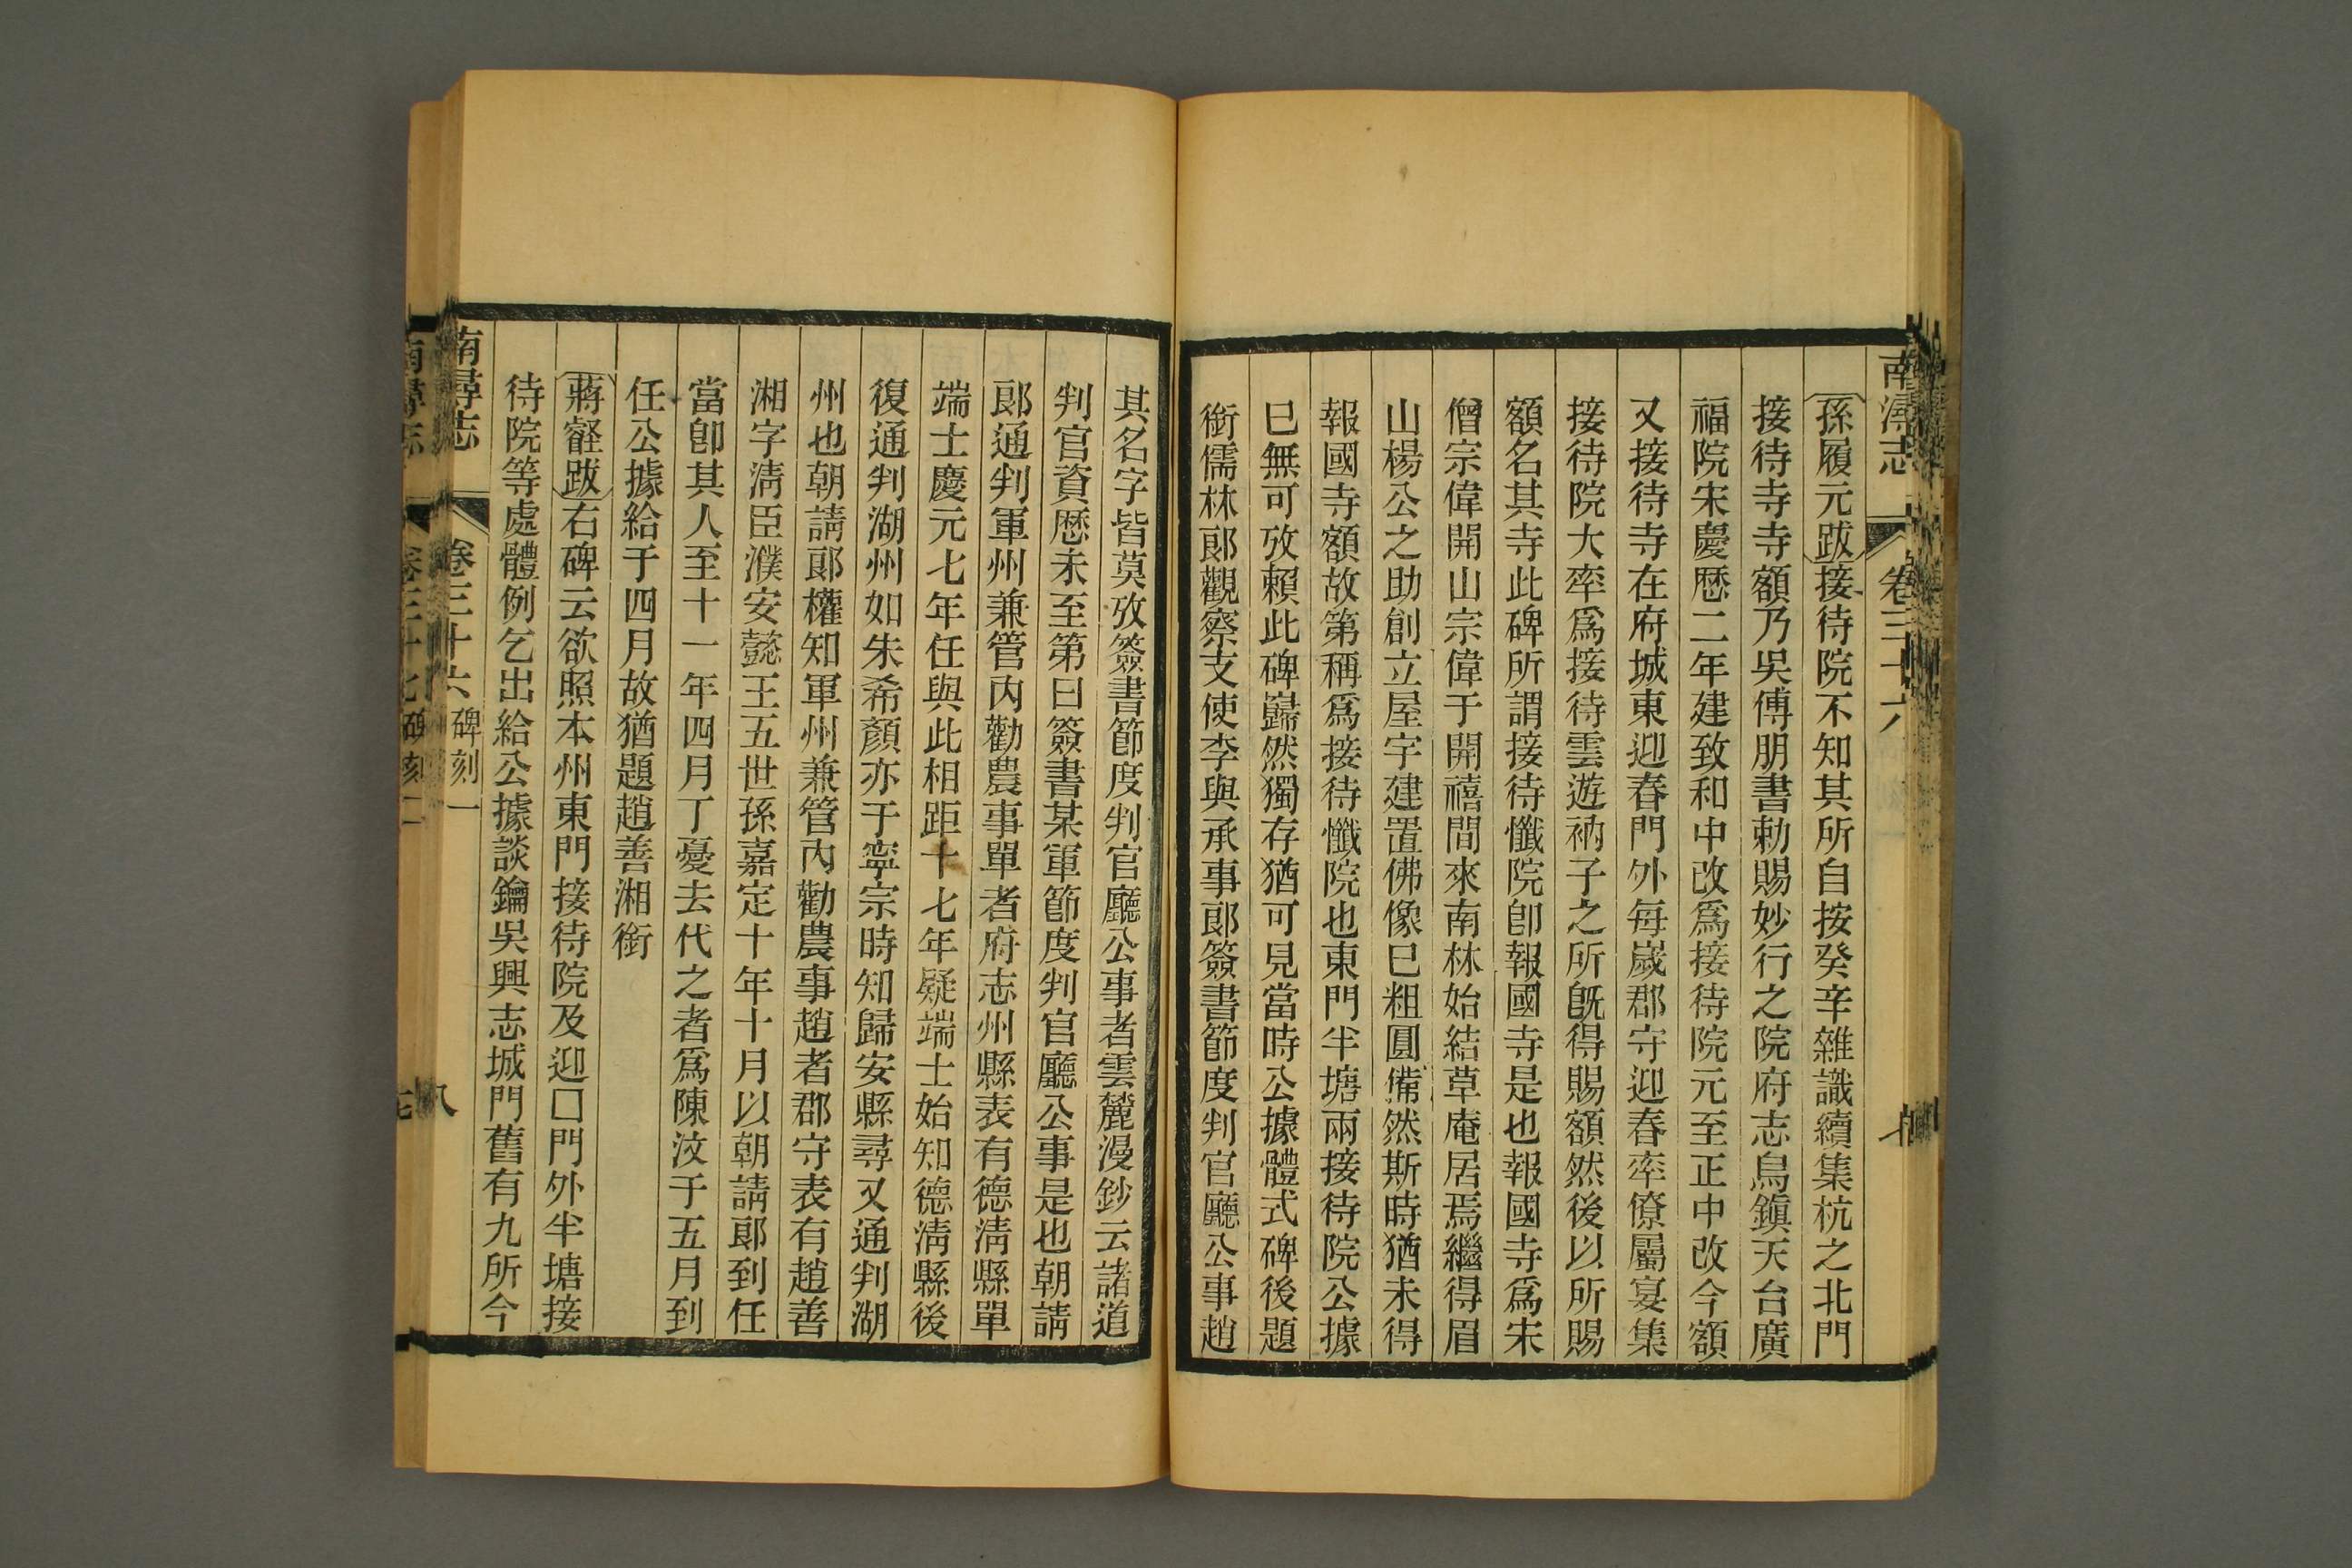 南潯志 卷三十六
孫履元跋接待院不知其所自按癸辛雜識續集杭之北門
接待寺寺額乃吳傅朋書勅賜妙行之院府志烏鎭天台廣
福院宋慶厯二年建致和中改爲接待院元至正中改今額
又接待寺在府城東迎春門外每嵗郡守迎春率僚屬宴集
接待院大率爲接待雲遊衲子之所旣得賜額然後以所賜
額名其寺此碑所謂接待懺院卽報國寺是也報國寺爲宋
僧宗偉開山宗偉于開禧間來南林始結草庵居焉繼得眉
山楊公之助創立屋宇建置佛像已粗圓備然斯時猶未得
報國寺額故第稱爲接待懺院也東門半塘兩接待院公據
已無可攷賴此碑巋然獨存猶可見當時公據體式碑後題
銜儒林郎觀察支使李與承事郎簽書節度判官廳公事趙
其名字皆莫攷簽書節度判官廳公事者雲麓漫鈔云諸道
判官資厯未至第曰簽書某軍節度判官廳公事是也朝請
郎通判軍州兼管內勸農事單者府志州縣表有德淸縣單
端士慶元七年任與此相距十七年疑端士始知德淸縣後
復通判湖州如朱希顏亦于寧宗時知歸安縣尋又通判湖
州也朝請郎權知軍州兼管內勸農事趙者郡守表有趙善
湘字淸臣濮安懿王五世孫嘉定十年十月以朝請郎到任
當卽其人至十一年四月丁憂去代之者爲陳汶于五月到
任公據給于四月故猶題趙善湘銜
蔣壑跋右碑云欲照本州東門接待院及迎口門外半塘接
待院等處體例乞出給公據談鑰吳興志城門舊有九所今
南潯志 卷三十六 碑刻一 八
南潯志 卷三十七 碑刻二